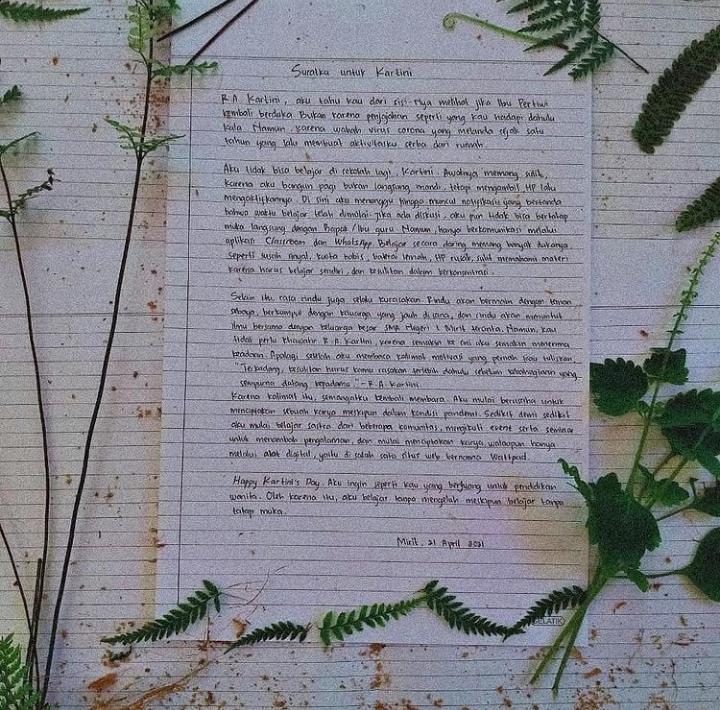 Suratku untuk Kartini
R.A. Kartini, aku tahu kau dari sisi-Nya melihat jika Ibu Pertiwi
kembali berduka Bukan karena penjajahan seperti yang kau hadapi dahulu
kala Namun, karena wabah virus corona yang melanda sejak satu
tahun yang lalu membuat aktivitasku serba dari rumah.
Aku tidak bisa belajar di sekolah lagi, Kartini. Awalnya memang sulit,
karena aku bangun pagi bukan langsung mandi, tetapi mengambil HP lalu
mengaktifkannya. Di sini aku menunggu hingga muncul notifikasi yang bertanda
bahwa waktu belajar telah dimulai. Jika ada diskusi, aku pun tidak bisa bertatap
muka langsung dengan Bapak/Ibu guru Namun, hanya berkomunikasi melalui
aplikasi Classroom dan WhatsApp. Belajar secara daring memang banyak dukanya,
seperti susah sinyal, kuota habis, baterai lemah, HP rusak, sulit memahami materi
karena harus belajar sendiri, dan kesulitan dalam berkonsentrasi.
Selain itu, rasa rindu juga selalu kurasakan. Rindu akan bermain dengan teman
sebaya, berkumpul dengan keluarga yang jauh di sana, dan rindu akan menuntut
ilmu bersama dengan keluarga besar SMA Negeri 1 Mirit tercinta. Namun, kau
tidak perlu khawatir R.A. Kartini, karena semakin ke sini aku semakin menerima
keadaan. Apalagi setelah aku membaca kalimat motivasi yang pernah kau tuliskan,
"Terkadang, kesulitan harus kamu rasakan terlebih dahulu sebelum kebahagiaan yang
sempurna datang kepadamu." - R.A. Kartini
Karena kalimat itu, semangatku kembali membara. Aku mulai berusaha untuk
menciptakan sebuah karya meskipun dalam kondisi pandemi. Sedikit demi sedikit
aku mulai belajar sastra dari beberapa komunitas, mengikuti event serta seminar
untuk menambah pengalaman, dan mulai menciptakan karya, walaupun hanya
melalui alat digital, yaitu di salah satu situs web bernama Wattpad.
Happy Kartini's Day. Aku ingin seperti kau yang berjuang untuk pendidikan
wanita. Oleh karena itu, aku belajar tanpa mengeluh meskipun belajar tanpa
tatap muka.
Mirit, 21 April 2021
GELATIK